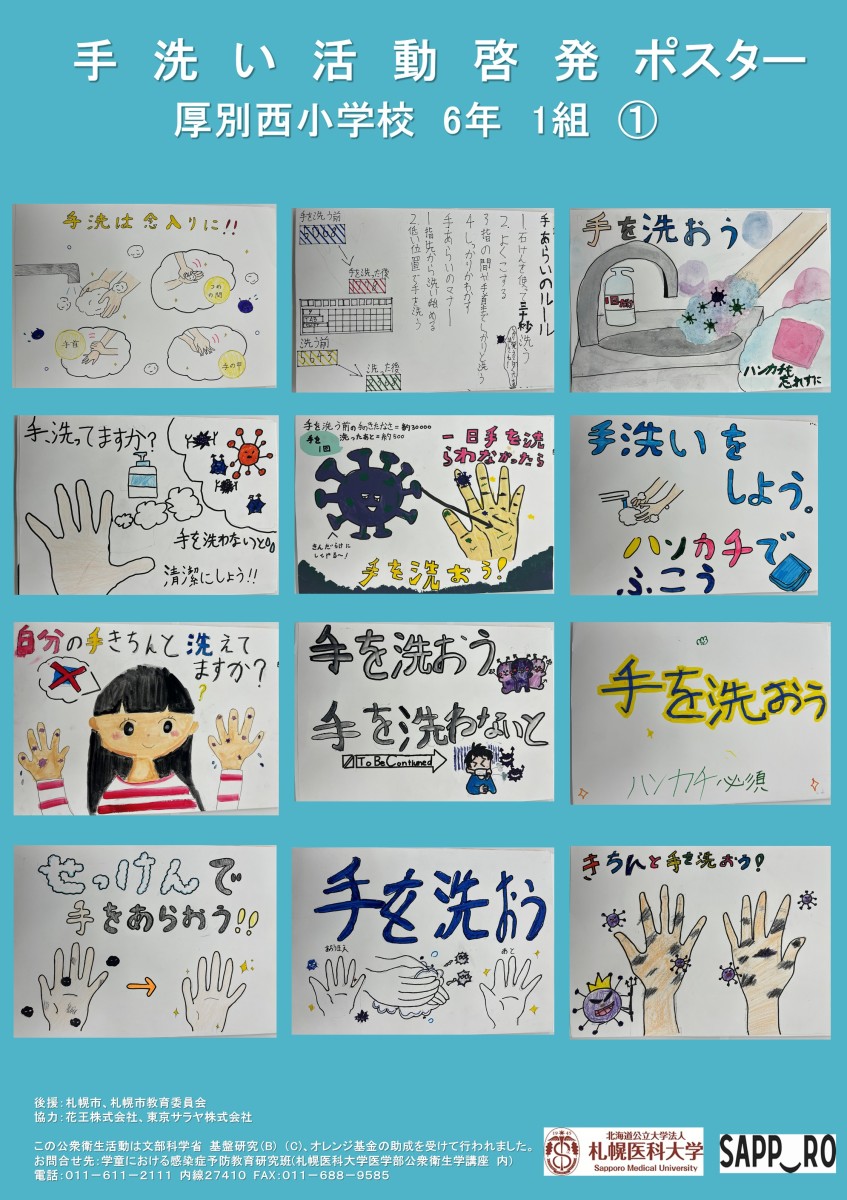 手洗い活動啓発ポスター
厚別西小学校 6年 1組 ①
手洗は念入りに!!
つめの間
手首
手の甲
手を洗う前
手を洗った後
洗う前
5643
洗った後
手あらいのルール
1.石けんを使って三十秒洗う
2.よくこする
3.指の間や手首までしっかりと洗う
4.しっかりかわかす
手あらいのマナー
1.指先から洗い始める
2.低い位置で手を洗う
手を洗おう
ハンカチも
忘れずに
手洗ってますか?
手を洗わないと。。
清潔にしよう!!
手を洗う前の手のきたなさ=約30000
手を1回
洗ったあと=約500
一日手を洗
らわなかったら
きんだらけに
してやる〜!
手を洗おう!
手洗いを
しよう。
ハンカチで
ふこう
自分の手きちんと洗えて
ますか?
?
手を洗おう
手を洗わないと
To Be Contiuned
手を洗おう
ハンカチ必須
せっけんで
手をあらおう!!
手を洗おう
あと
きちんと手を洗おう!
後援:札幌市、札幌市教育委員会
協力:花王株式会社、東京サラヤ株式会社
この公衆衛生活動は文部科学省 基盤研究(B) (C)、オレンジ基金の助成を受けて行われました。
お問合せ先:学童における感染症予防教育研究班(札幌医科大学医学部公衆衛生学講座 内)
電話:011-611-2111 内線27410 FAX:011-688-9585
北海道公立大学法人
札幌医科大学
Sapporo Medical University
SAPP_RO